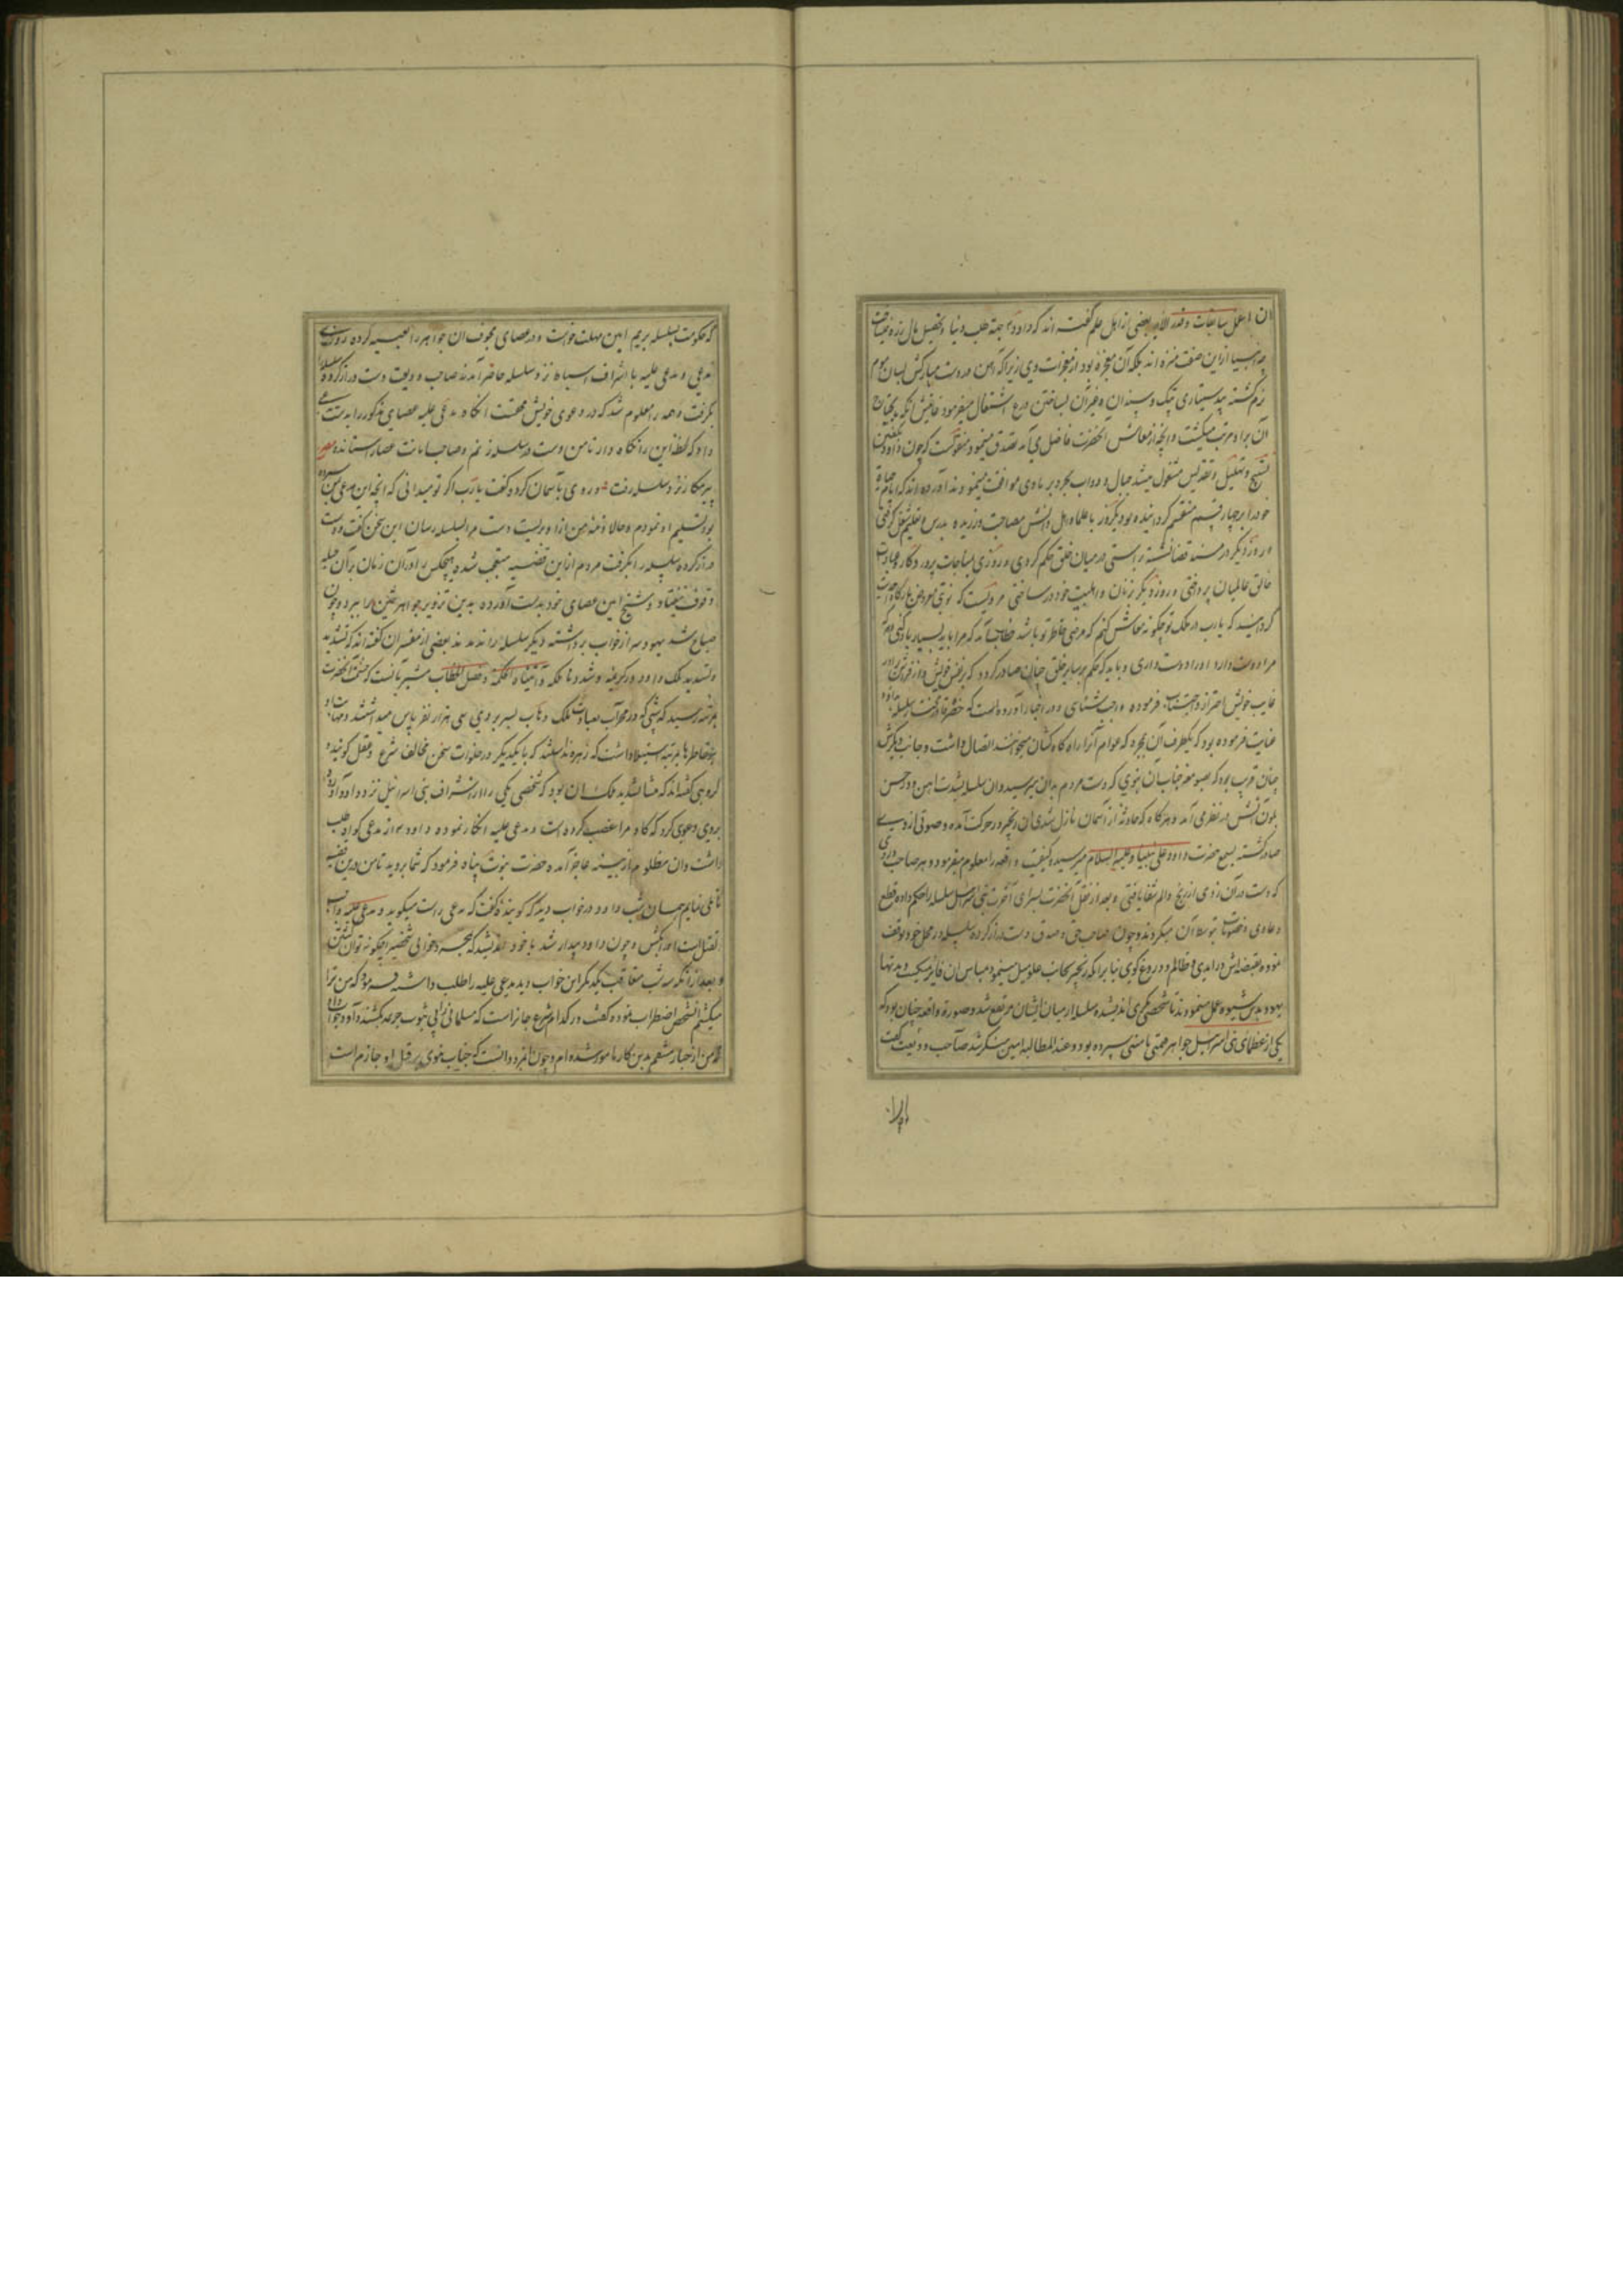 ان اعمل سابغات وقدر الآیه بعضی از اهل علم گفته اند که داود جهة طلب دنیا و تحصیل مال زره میبافت
چه انبیا از این صنعت منزه اند بلکه آن معجزه بود از معجزات وی زیرا که آهن در دست مبارکش بسان موم
نرم گشته بی دستیاری پتک و سندان و غیر آن بساختن درع اشتغال میفرمود
آن برا و مرتب میگشت و آنچه از معاش آنحضرت فاضل می آمد تصدق مینمود منقولست که چون داود بگفتن
تسبیح و تهلیل و تقدیس مشغول میشد جبال و دواب بحر و بر با وی موافقت مینمودند آورده اند که ایام حیاة
خود را بر چهار قسم منقسم گردانیده بود یکروز با علما و اهل دانش مصاحبت ورزیده بدرس و تعلیم شغل گرفتی
و روز دیگر در مسند قضا نشسته براستی در میان خلق حکم کردی و روزی بمناجات پروردگار و عبادت
خالق عالمیان پرداختی و روز دیگر با زنان و اهلبیت خود در ساختی مرویست که نوبتی معروض بارگاه احدیت
گردانید که یارب در ملک تو چگونه معاش کنم که مرضی خاطر تو باشد خطاب آمد که مرا باید بسیار یاد کنی و هر که
مرا دوست دارد او را دوست داری و باید که حکم بر سایر خلق چنان صادر گردد که بر نفس خویش و از
غایب خویش احتراز و اجتناب فرموده واجب شناسی و در اخبار آورده است که حضرت قادر مختار سلسله بداود
عنایت فرموده بود که یکطرف آن بمجره که عوام آنرا راه کاه کشان میخوانند اتصال داشت و جانب دیگرش
چنان قریب بود که بصومعه جناب آن نبوی که دست مردم بدان میرسید و آن سلسله بشدت آهن و در حسن
بلون آتش در نظر می آمد و هر گاه که حادثه از آسمان نازل شدی آن زنجیر در حرکت آمده و صوتی از وی
صادر گشته بسمع حضرت داود علی نبینا و علیه السلام میرسید و کیفیت واقعه را معلوم میفرمود و هر صاحب دردی
که دست در آن زدی از رنج و الم شفا یافتی و بعد از نقل آنحضرت بسرای آخرت بنی اسرائیل سلسله را حکم داده قطع
دعاوی و خصومات بتوسط آن میکردند و چون صاحب حق و صدق دست دراز کرده سلسله در محل خود توقف
نموده بقبضه اش درآمدی و ظالم و دروغ گوی بنا بر آنکه زنجیر بجانب علو میل مینمود بمساس آن فایز نمیگشت و مدتها
یهود بدین شیوه عمل مینمودند تا شخصی مکری اندیشیده سلسله از میان ایشان مرتفع شد و صورة واقعه چنان بود که
یکی از عظمای بنی اسرائیل جواهر قیمتی بامینی سپرده بود و عند المطالبه امین منکر شد صاحب ودیعت گفت
که حکومت بسلسله بریم امین مهلت خواست و در عصای مجوف آن جواهر را تعبیه کرده روزی
مدعی و مدعی علیه با اشراف اسباط نزد سلسله حاضر آمدند صاحب ودیعت دست دراز کرده سلسله
بگرفت و همه را معلوم شد که در دعوی خویش محقست آنگاه مدعی علیه عصای مذکور را بدست مدعی
داد که لحظه این را نگاه دار تا من دست در سلسله زنم و صاحب امانت عصا را ستانده
پیر مکار نزد سلسله رفت و روی بآسمان کرد و گفت یارب اگر تو میدانی که آنچه این مدعی بمن سپرده
بود تسلیم او نمودم و حالا ذمه من از آن بریست دست مرا بسلسله رسان این سخن گفت و دست
دراز کرده سلسله را بگرفت مردم از این قضیه متعجب شده هیچکس را در آن زمان بر آن حیله
وقوف نیفتاد و شیخ امین عصای خود بدست آورده بدین تزویر جواهر ثمین را ببرد و چون
صباح شد یهود سر از خواب برداشته دیگر سلسله را ندیدند بعضی از مفسران گفته اند که تشدید
و تسدید ملک داود در کریمه و شددنا ملکه و آتیناه الحکمة و فصل الخطاب مشیر بآنست که حشمت آنحضرت
بمرتبه رسید که شبی که در محراب بعبادت ملک وهاب بسر بردی سی هزار نفر پاس میداشتند و مهابت او
بر خواطرها بمرتبه استیلا داشت که زهره نداشتند که با یکدیگر در خلوات سخن مخالف شرع و عقل گویند و
گروهی گفته اند که منشا تشدید ملک آن بود که شخصی یکی را از اشراف بنی اسرائیل نزد داود آورد و
بروی دعوی کرد که گاو مرا غصب کرده است و مدعی علیه انکار نموده داود از مدعی گواه طلب
داشت و آن مظلوم از بینه عاجز آمده حضرت نبوت پناه فرمود که شما بروید تا من در این قضیه
تأملی نمایم همان شب داود در خواب دید که گوینده گفت که مدعی راست میگوید و مدعی علیه واجب
القتل است او را بکش و چون داود بیدار شد با خود اندیشید که بمجرد خوابی شخصی را چگونه توان کشتن
و بعد از آنکه سه شب متعاقب یکدیگر این خواب دید مدعی علیه را طلب داشته فرمود که من ترا
میکشم آن شخص اضطراب نموده گفت در کدام شرع جایز است که مسلمانی را بی ثبوت جرم بکشند داود جواب داد
که من از جبار منتقم بدین کار مامور شده ام و چون آنمرد دانست که جناب نبوی بر قتل او جازم است